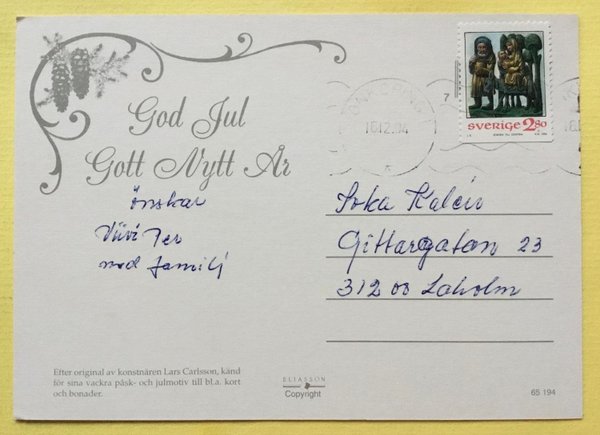 God Jul
Gott Nytt År
önskar
Viivi Per
med familj
7
16.12.04
SVERIGE 2.80
Soka Kalén
Gittargatan 23
312 00 Laholm
Efter original av konstnären Lars Carlsson, känd
för sina vackra påsk- och julmotiv till bl.a. kort
och bonader.
ELIASSON
Copyright
65 194